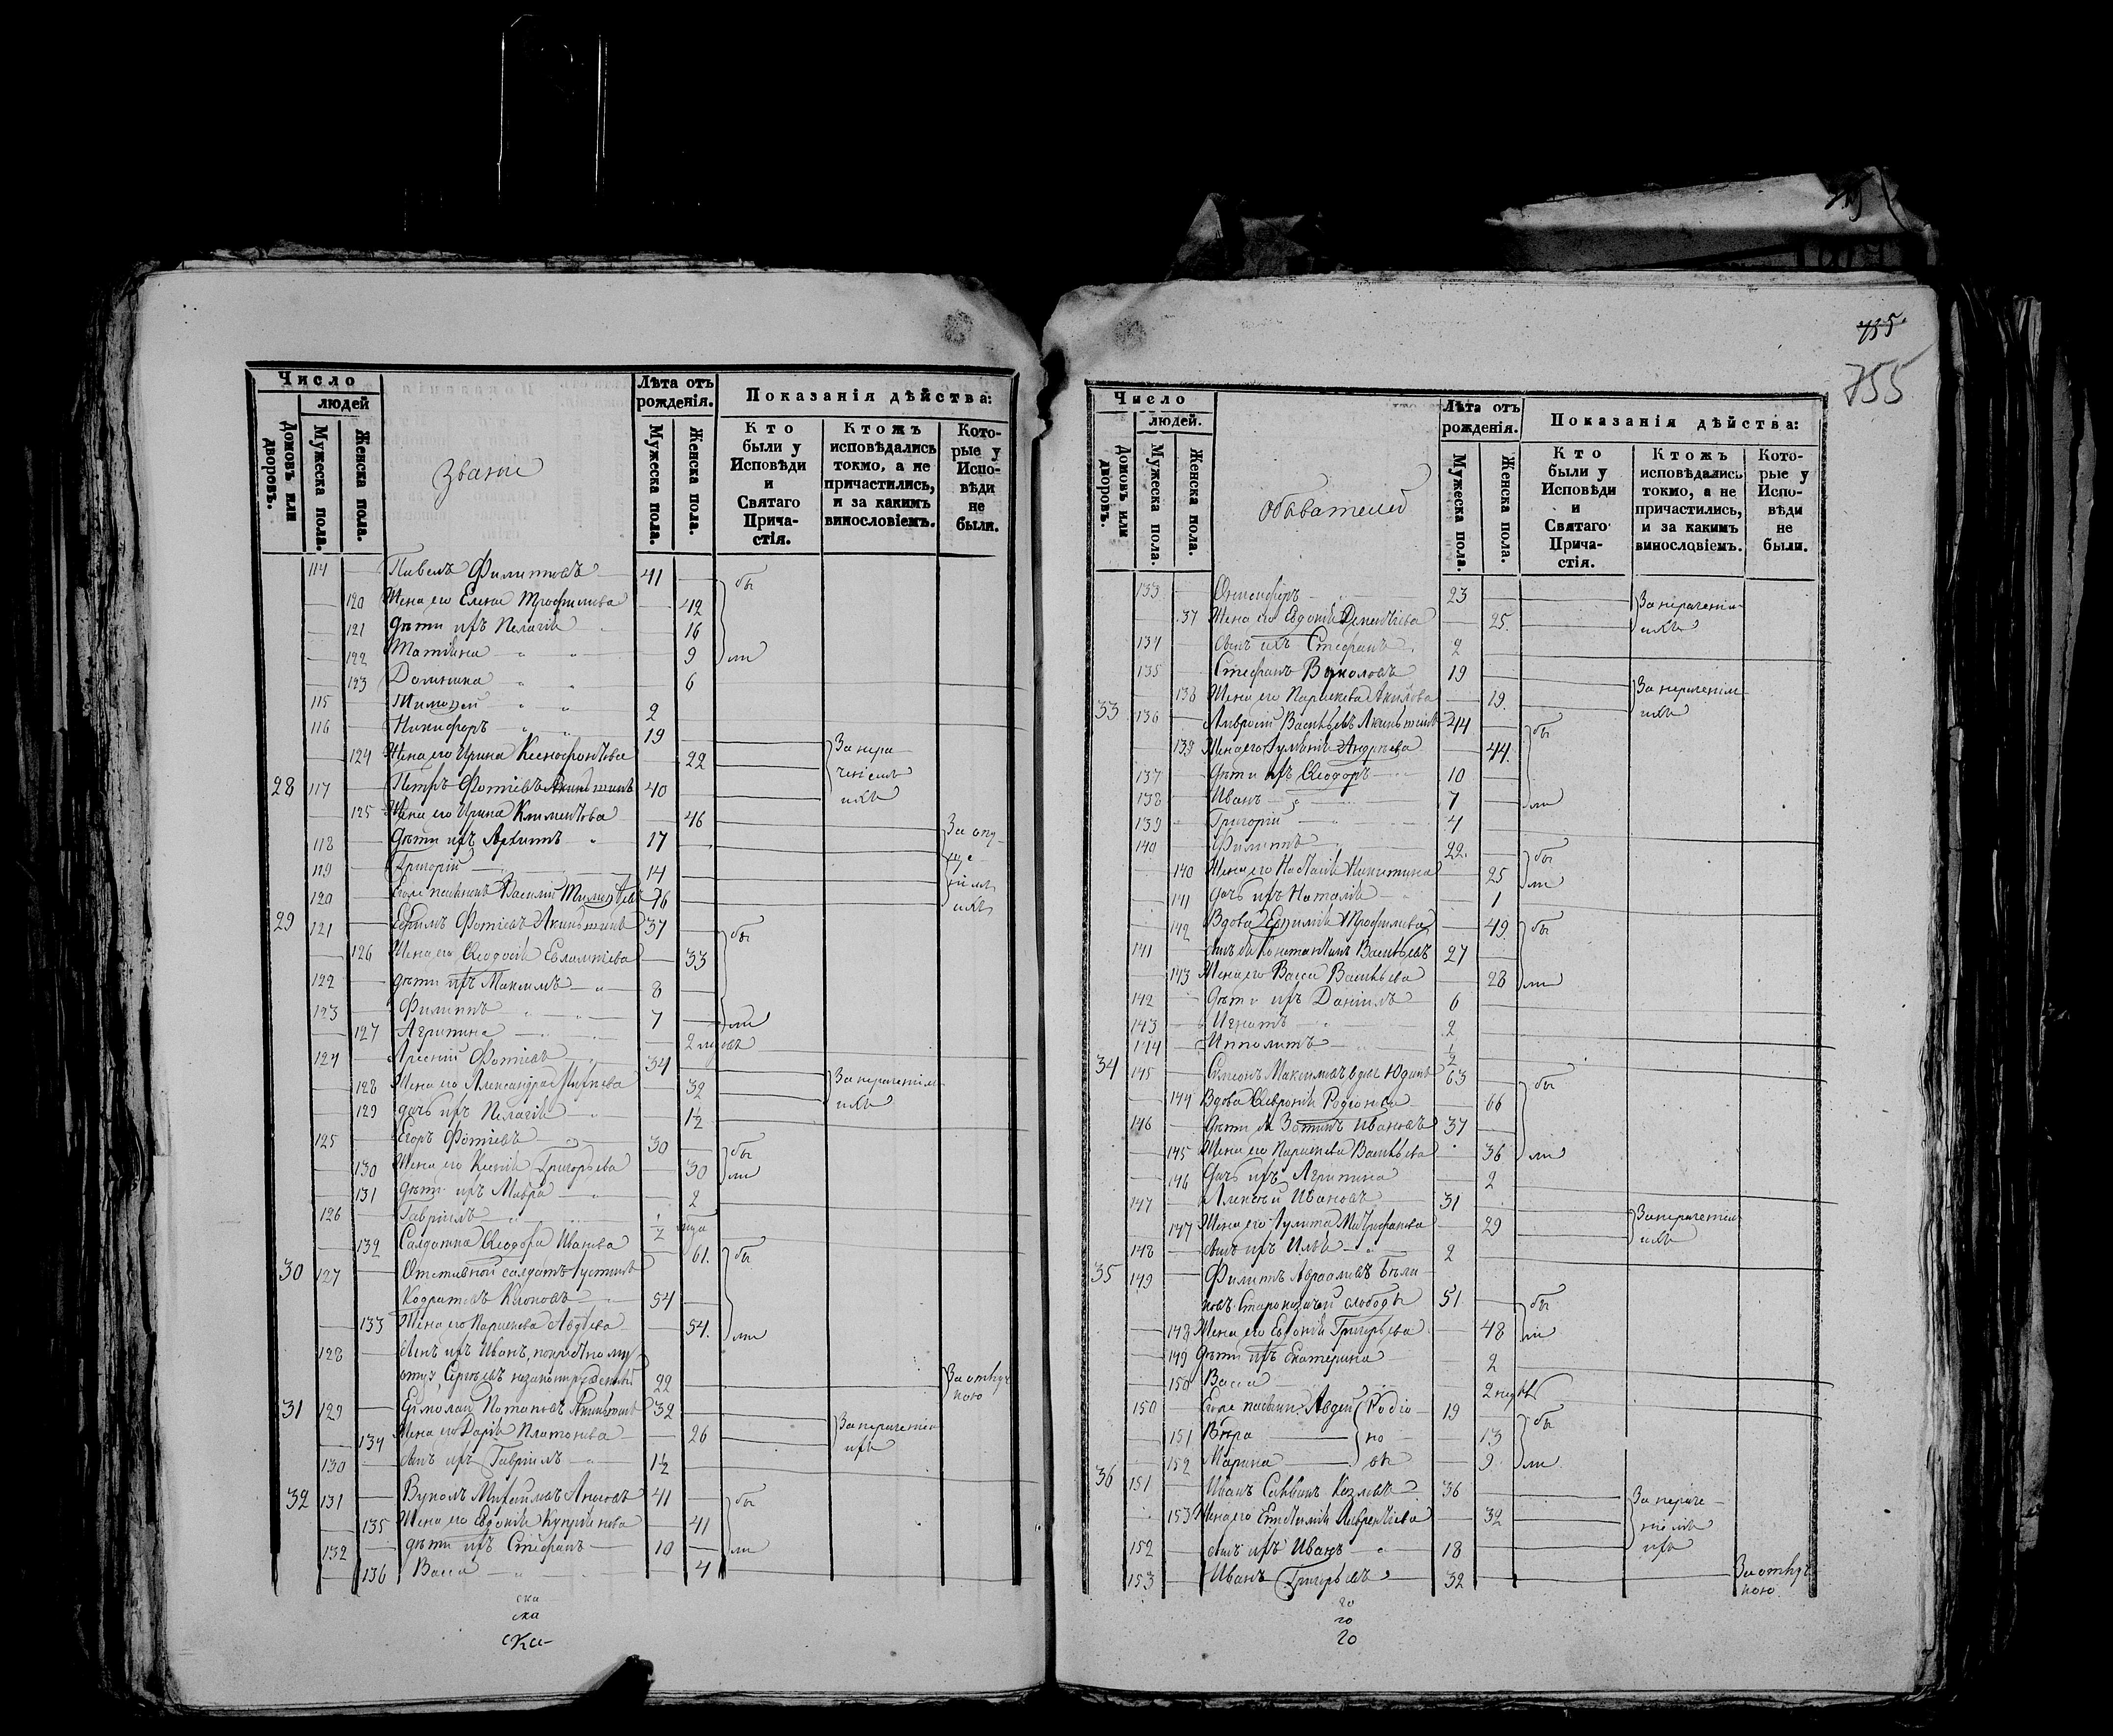 Число
людей
Домовъ или дворовъ.
Мужеска пола.
Женска пола.
Званіе
Лѣта отъ рожденія.
Мужеска пола.
Женска пола.
Показанія дѣйства:
Кто были у Исповѣди и Святаго Причастія.
Ктожъ исповѣдались токмо, а не причастились, и за какимъ винословіемъ.
Которые у Исповѣди не были.
114 Павелъ Филиповъ 41 бы
120 Жена его Елена Трофимова 42
121 Дѣти ихъ Пелагія 16
122 Татіяна 9 ли
123 Домника 6
115 Тимоѳей 2
116 Никифоръ 19
124 Жена его Ирина Ксенофонтова 22 За нера
28 117 Петръ Фотіевъ 40 ченіемъ
125 Жена его Ирина Климентова 46 ихъ
118 Дѣти ихъ Архипъ 17 За опу
119 Григорій 14
120 Василій 16 ихъ
29 121 Ефимъ Фотіевъ 37 бы
126 Жена его Ѳеодосія Евлампіева 33
122 дѣти ихъ Максимъ 8
123 Филиппъ 7 ли
127 Агрипина 2
124 Арсеній Фотіевъ 34
128 Жена его Александра 32 За нераченіем
129 дочь ихъ Пелагія 1½ ихъ
125 Егоръ Фотіевъ 30 бы
130 Жена его Ксенія Григорьева 30 ли
131 Дѣти ихъ Мавра 2
126 Гавріилъ ½
132 Солдатка Ѳеодора Иванова 61. бы
30 127 Отставной солдатъ Іустинъ
Кодратовъ 54
133 Жена его Параскева Авдѣева 54. ли
128 Сынъ ихъ Иванъ,
22 За отлуч
кою
31 129 Потаповъ 32
134 Жена его Дарія Платонова 26 За нераченіем
130 Сынъ ихъ Гавріилъ 1½ ихъ
32 131 Вуколъ Михайловъ 41 бы
135 Жена его Евдокія Купріянова 41
132 дѣти ихъ Стефанъ 10 ли
136 Васса 4
ска
ска
ска
735
755
Число
людей.
Домовъ или дворовъ.
Мужеска пола.
Женска пола.
Обывателей
Лѣта отъ рожденія.
Мужеска пола.
Женска пола.
Показанія дѣйства:
Кто были у Исповѣди и Святаго Причастія.
Ктожъ исповѣдались токмо, а не причастились, и за какимъ винословіемъ.
Которые у Исповѣди не были.
133 Онисифоръ 23 За нераченіем
137 Жена его Евдокія Дементіева 25. ихъ
134 Сынъ ихъ Стефанъ 2
135 Стефанъ Вуколовъ 19 За нераченіем
138 Жена его Параскева Акилова 19. ихъ
33 136 Амвросій Васильевъ 44 бы
139 Жена его Андрѣева 44.
137 Дѣти ихъ Ѳеодоръ 10
138 Иванъ 7 ли
139 Григорій 4
140 Филиппъ 22. бы
140 Жена его Наталія Никитина 25 ли
141 Дочь ихъ Наталія 1
142 Вдова Евфимія Трофимова 49 бы
141 Сынъ ея Константинъ Васильевъ 27
143 Жена его Васса Васильева 28 ли
142 Дѣти ихъ Даніилъ 6
143 Игнатъ 2
144 Ипполитъ ½
34 145 Симеонъ Максимовъ вдов. Юдинъ 63 бы
144 Вдова Ѳевронія Родіонова 66
146 Дѣти ея Зотикъ Ивановъ 37
145 Жена его Параскева Васильева 36 ли
146 Дочь ихъ Агрипина 2
147 Алексѣй Ивановъ 31
147 Жена его Іулита Митрофанова 29 За нераченіем
148 Сынъ ихъ Илья 2 ихъ
35 149 Филипъ Авраамовъ Бѣли
ковъ Староказачей слободы 51 бы
148 Жена его Евдокія Григорьева 48 ли
149 Дѣти ихъ Екатерина 2
150 Васса 2
150 Авдей Родіо 19 бы
151 Вѣра но 13
152 Марина 9 ли
36 151 Иванъ Козловъ 36 За нераче
153 Жена его Лаврентіева 32 ніемъ
152 Сынъ ихъ Иванъ 18 ихъ
153 Иванъ Григорьевъ 32 За отлуч
кою
го
го
го